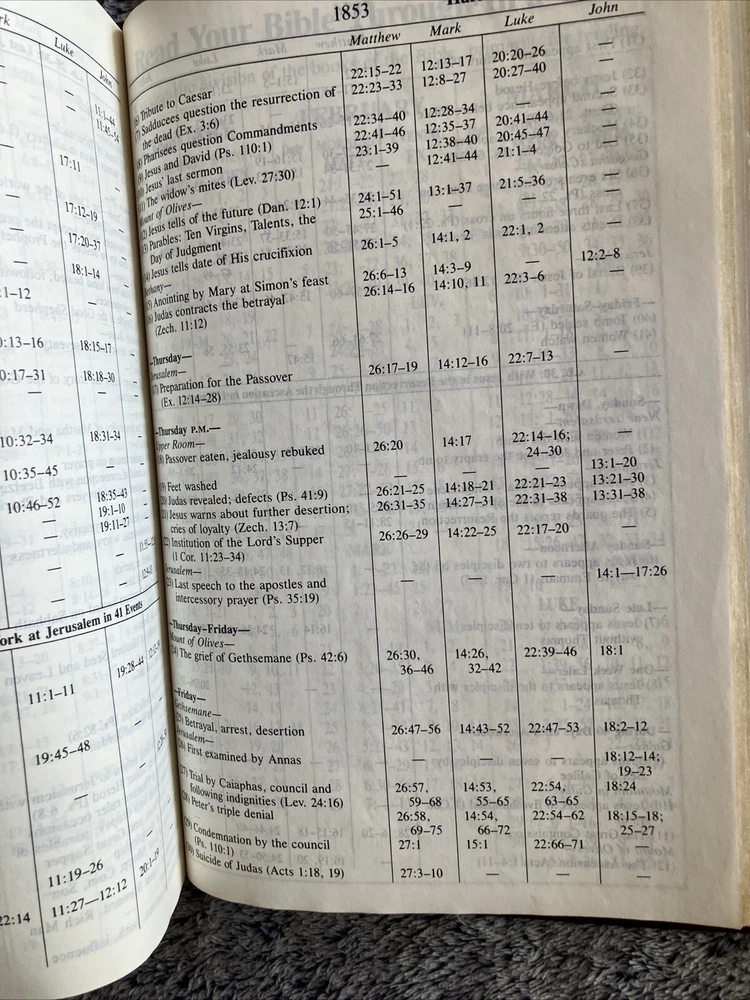 1853
Matthew Mark Luke John
(6) Tribute to Caesar 22:15–22 12:13–17 20:20–26 —
(7) Sadducees question the resurrection of 22:23–33 12:8–27 20:27–40 —
the dead (Ex. 3:6)
Pharisees question Commandments 22:34–40 12:28–34 — —
Jesus and David (Ps. 110:1) 22:41–46 12:35–37 20:41–44 —
Jesus' last sermon 23:1–39 12:38–40 20:45–47 —
The widow's mites (Lev. 27:30) — 12:41–44 21:1–4 —
Mount of Olives—
Jesus tells of the future (Dan. 12:1) 24:1–51 13:1–37 21:5–36 —
Parables: Ten Virgins, Talents, the 25:1–46 — — —
Day of Judgment
Jesus tells date of His crucifixion 26:1–5 14:1, 2 22:1, 2 —
Bethany—
Anointing by Mary at Simon's feast 26:6–13 14:3–9 — 12:2–8
Judas contracts the betrayal 26:14–16 14:10, 11 22:3–6 —
(Zech. 11:12)
—Thursday—
Jerusalem—
Preparation for the Passover 26:17–19 14:12–16 22:7–13 —
(Ex. 12:14–28)
—Thursday P.M.—
Upper Room—
Passover eaten, jealousy rebuked 26:20 14:17 22:14–16; —
24–30
Feet washed — — — 13:1–20
Judas revealed; defects (Ps. 41:9) 26:21–25 14:18–21 22:21–23 13:21–30
Jesus warns about further desertion; 26:31–35 14:27–31 22:31–38 13:31–38
cries of loyalty (Zech. 13:7)
Institution of the Lord's Supper 26:26–29 14:22–25 22:17–20 —
(1 Cor. 11:23–34)
Jerusalem—
Last speech to the apostles and — — — 14:1—17:26
intercessory prayer (Ps. 35:19)
—Thursday–Friday—
Mount of Olives—
The grief of Gethsemane (Ps. 42:6) 26:30, 14:26, 22:39–46 18:1
36–46 32–42
—Friday—
Gethsemane—
Betrayal, arrest, desertion 26:47–56 14:43–52 22:47–53 18:2–12
Jerusalem—
First examined by Annas — — — 18:12–14;
19–23
Trial by Caiaphas, council and 26:57, 14:53, 22:54, 18:24
following indignities (Lev. 24:16) 59–68 55–65 63–65
Peter's triple denial 26:58, 14:54, 22:54–62 18:15–18;
69–75 66–72 25–27
Condemnation by the council 27:1 15:1 22:66–71 —
(Ps. 110:1)
Suicide of Judas (Acts 1:18, 19) 27:3–10 — — —
Luke John
11:1–44
11:45–54
17:11
17:12–19
17:20–37
18:1–14
18:15–17
18:18–30
10:32–34 18:31–34
10:35–45 —
10:46–52 18:35–43
19:1–10
19:11–27
ork at Jerusalem in 41 Events
11:1–11 19:28–44
19:45–48
11:19–26
22:14 11:27—12:12 20:1–19